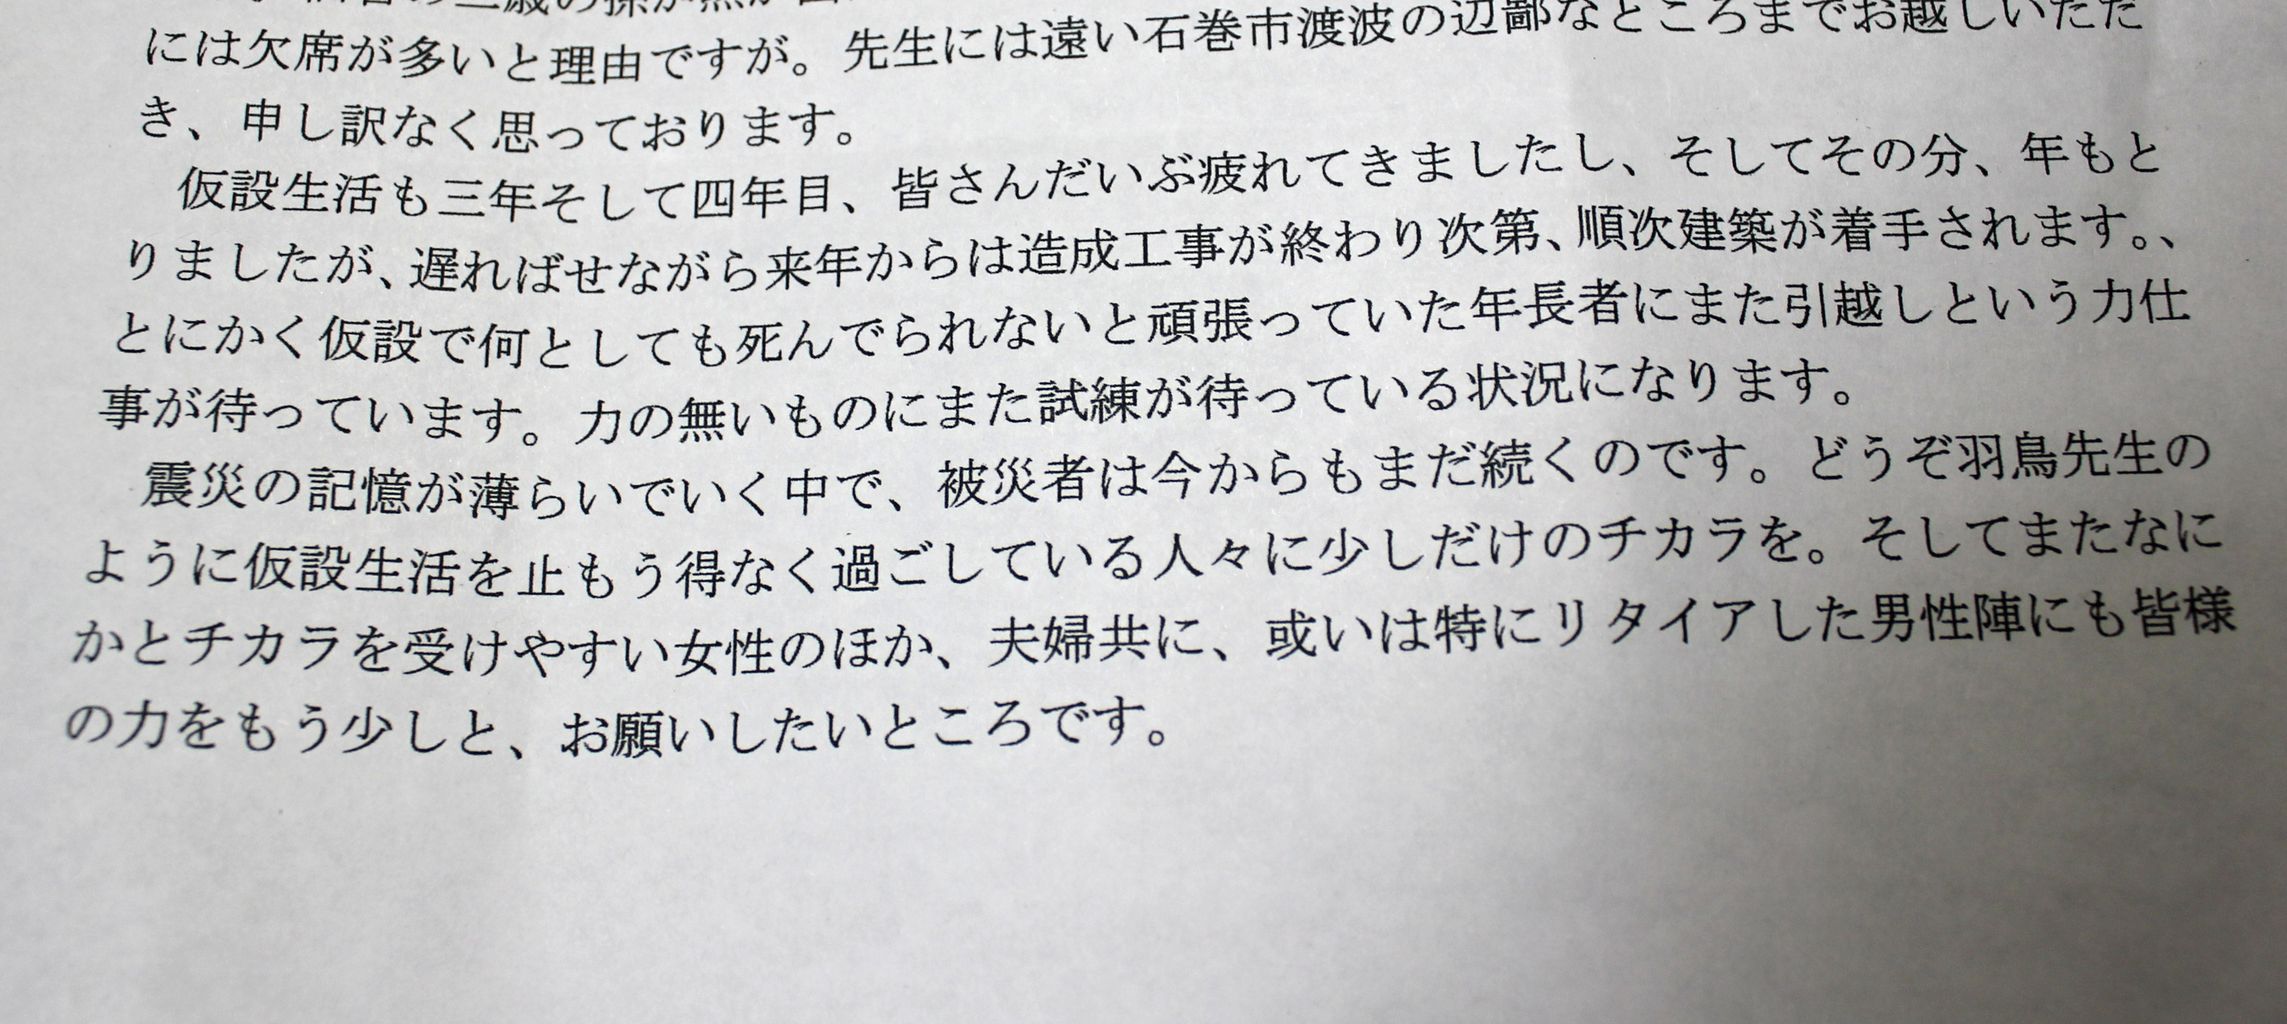 の三歳の孫が熱が
には欠席が多いと理由ですが。先生には遠い石巻市渡波の辺鄙なところまでお越しいただ
き、申し訳なく思っております。
仮設生活も三年そして四年目、皆さんだいぶ疲れてきましたし、そしてその分、年もと
りましたが、遅ればせながら来年からは造成工事が終わり次第、順次建築が着手されます。、
とにかく仮設で何としても死んでられないと頑張っていた年長者にまた引越しという力仕
事が待っています。力の無いものにまた試練が待っている状況になります。
震災の記憶が薄らいでいく中で、被災者は今からもまだ続くのです。どうぞ羽鳥先生の
ように仮設生活を止もう得なく過ごしている人々に少しだけのチカラを。そしてまたなに
かとチカラを受けやすい女性のほか、夫婦共に、或いは特にリタイアした男性陣にも皆様
の力をもう少しと、お願いしたいところです。